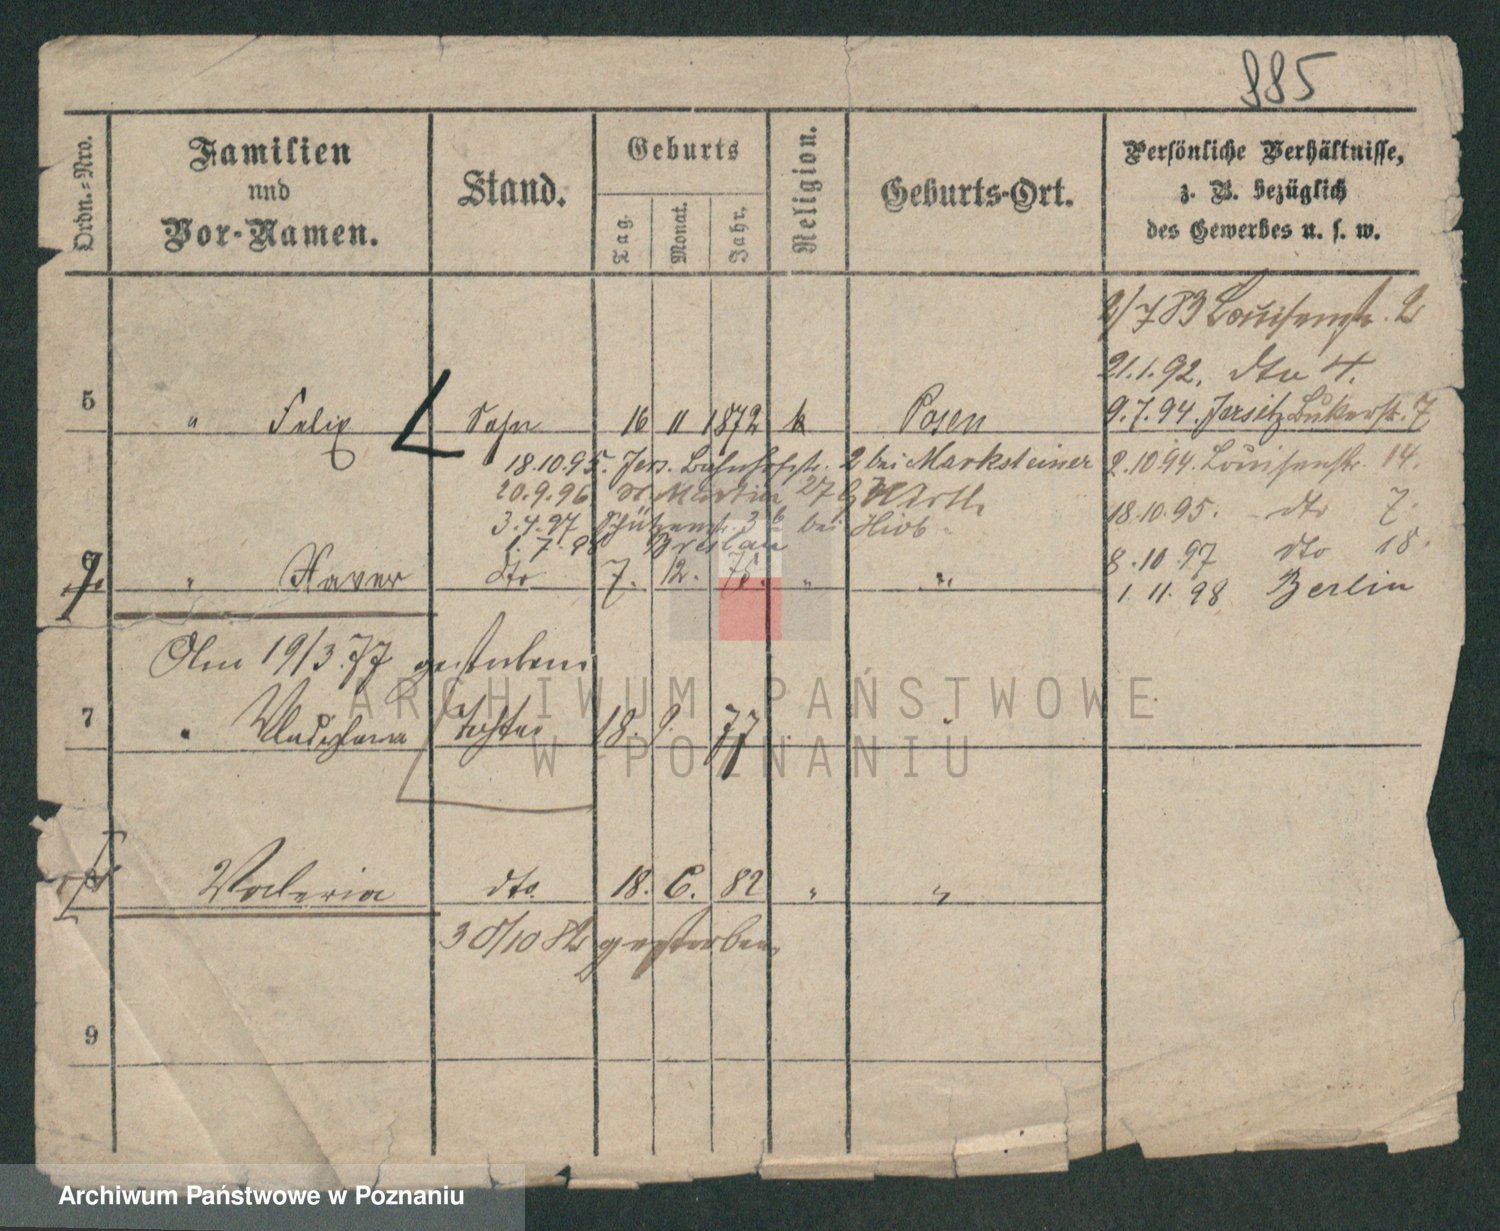 885
Ordn.=Nro.
Familien
und
Vor-Namen.
Stand.
Geburts
Tag.
Monat.
Jahr.
Religion.
Geburts-Ort.
Persönliche Verhältnisse,
z. B. bezüglich
des Gewerbes u. s. w.
2/7 83 Louisenstr. 2
21.1.92. dto 4.
5 " Felix Sohn 16 11 1872 k Posen
9.7.94. Jersitz Bukerstr. 7
18.10.95. Jers. Bahnhofstr. 2 bei Marksteiner
2.10 94. Louisenstr. 14.
20.9.96 St Martin 27
18.10.95. dto 7.
3.4.97 Schützenstr. 3 b bei Hiob
1.7.98 Breslau
8.10 97 dto 18.
" Xaver dto 7. 12. 75. " "
1. 11. 98 Berlin
Am 19/3.77 gestorben
7 " Wladislawa Tochter 18. 9. 77 "
Valeria dto. 18. 6. 82 " "
30/10 82 gestorben
9
ARCHIWUM PAŃSTWOWE
W POZNANIU
Archiwum Państwowe w Poznaniu